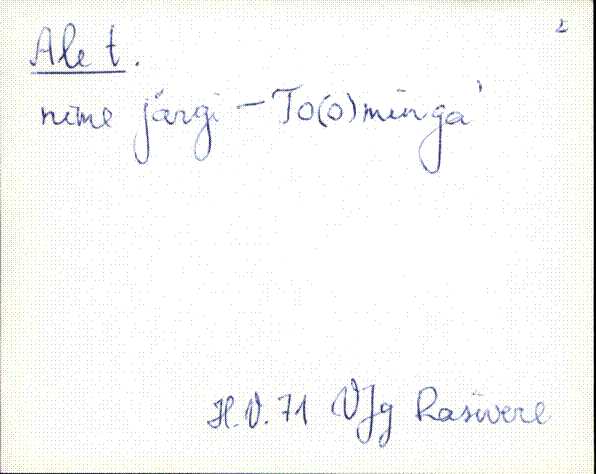 2
Ale t.
nime järgi – To(o)minga'
H.V. 71 VJg Rasivere